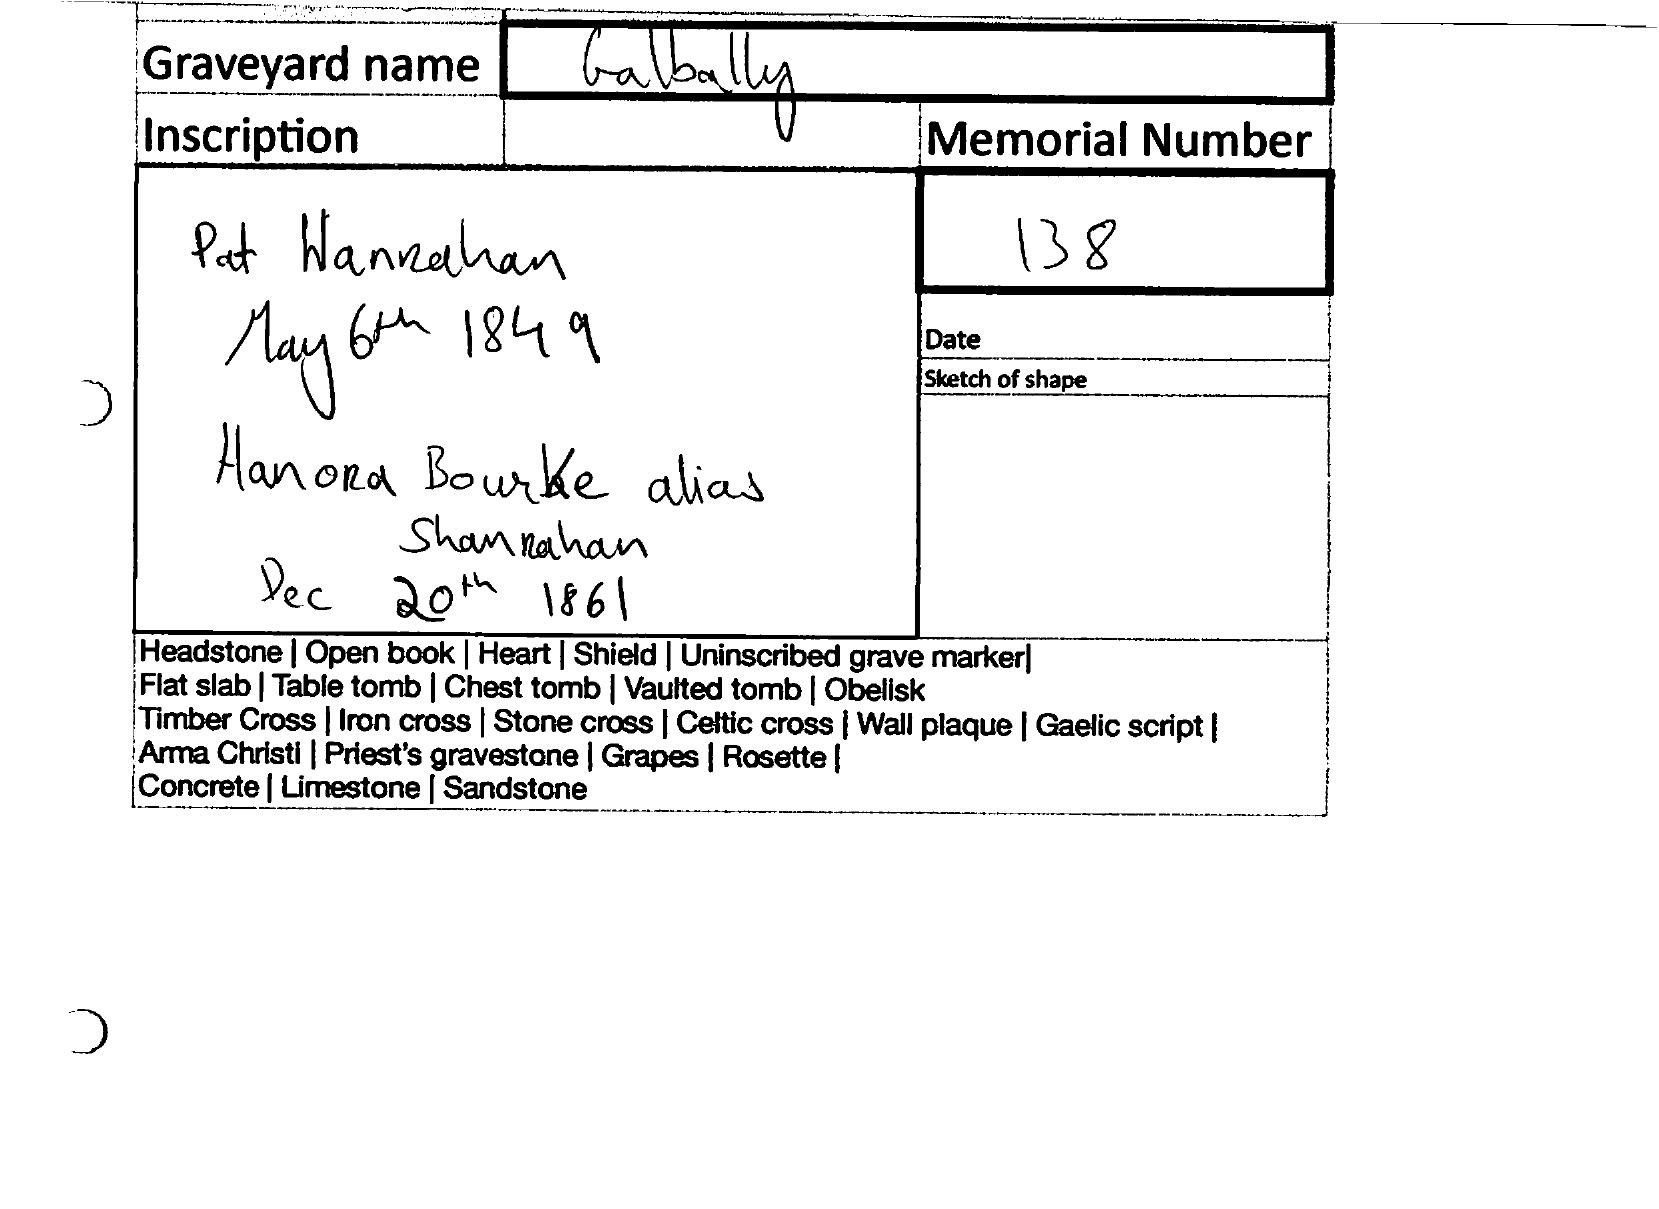 Graveyard name Galbally
Inscription Memorial Number
138
Pat Hanrahan
May 6th 1849
Hanora Bourke alias
Shanrahan
Dec 20th 1861
Date
Sketch of shape
Headstone | Open book | Heart | Shield | Uninscribed grave marker|
Flat slab | Table tomb | Chest tomb | Vaulted tomb | Obelisk
Timber Cross | Iron cross | Stone cross | Celtic cross | Wall plaque | Gaelic script |
Arma Christi | Priest's gravestone | Grapes | Rosette |
Concrete | Limestone | Sandstone